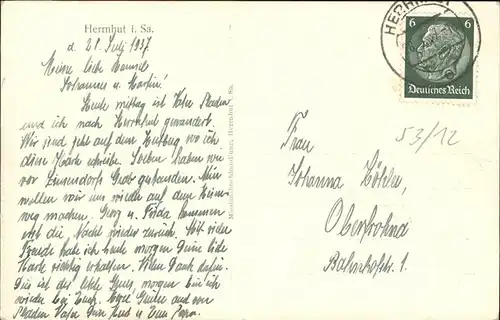 Herrnhut i. Sa.
d. 28. Juli 1937.
Meine liebe
Johannes u. Martin!
Heute mittag ist Vater
und ich nach Herrnhut gewandert.
Wir sind jetzt auf dem Hutberg wo ich
diese Karte schreibe. Soeben haben wir
vor Zinzendorfs Grab gestanden. Nun
wollen wir uns wieder auf den Heim-
weg machen. Georg u. kommen
erst die Nacht wieder zurück. Mit vieler
Freude habe ich heute morgen Deine liebe
Karte richtig erhalten. Vielen Dank dafür.
Dies ist der letzte Gruß, morgen bin ich
wieder bei Euch. Grüße und von
Vater Gruß u. Euer Papa.
Missionsbuchhandlung, Herrnhut i. Sa.
HERRNHUT
6 6
Deutsches Reich
53/12
Frau
Johanna Köhler
Oberfrohna
Bahnhofstr. 1.